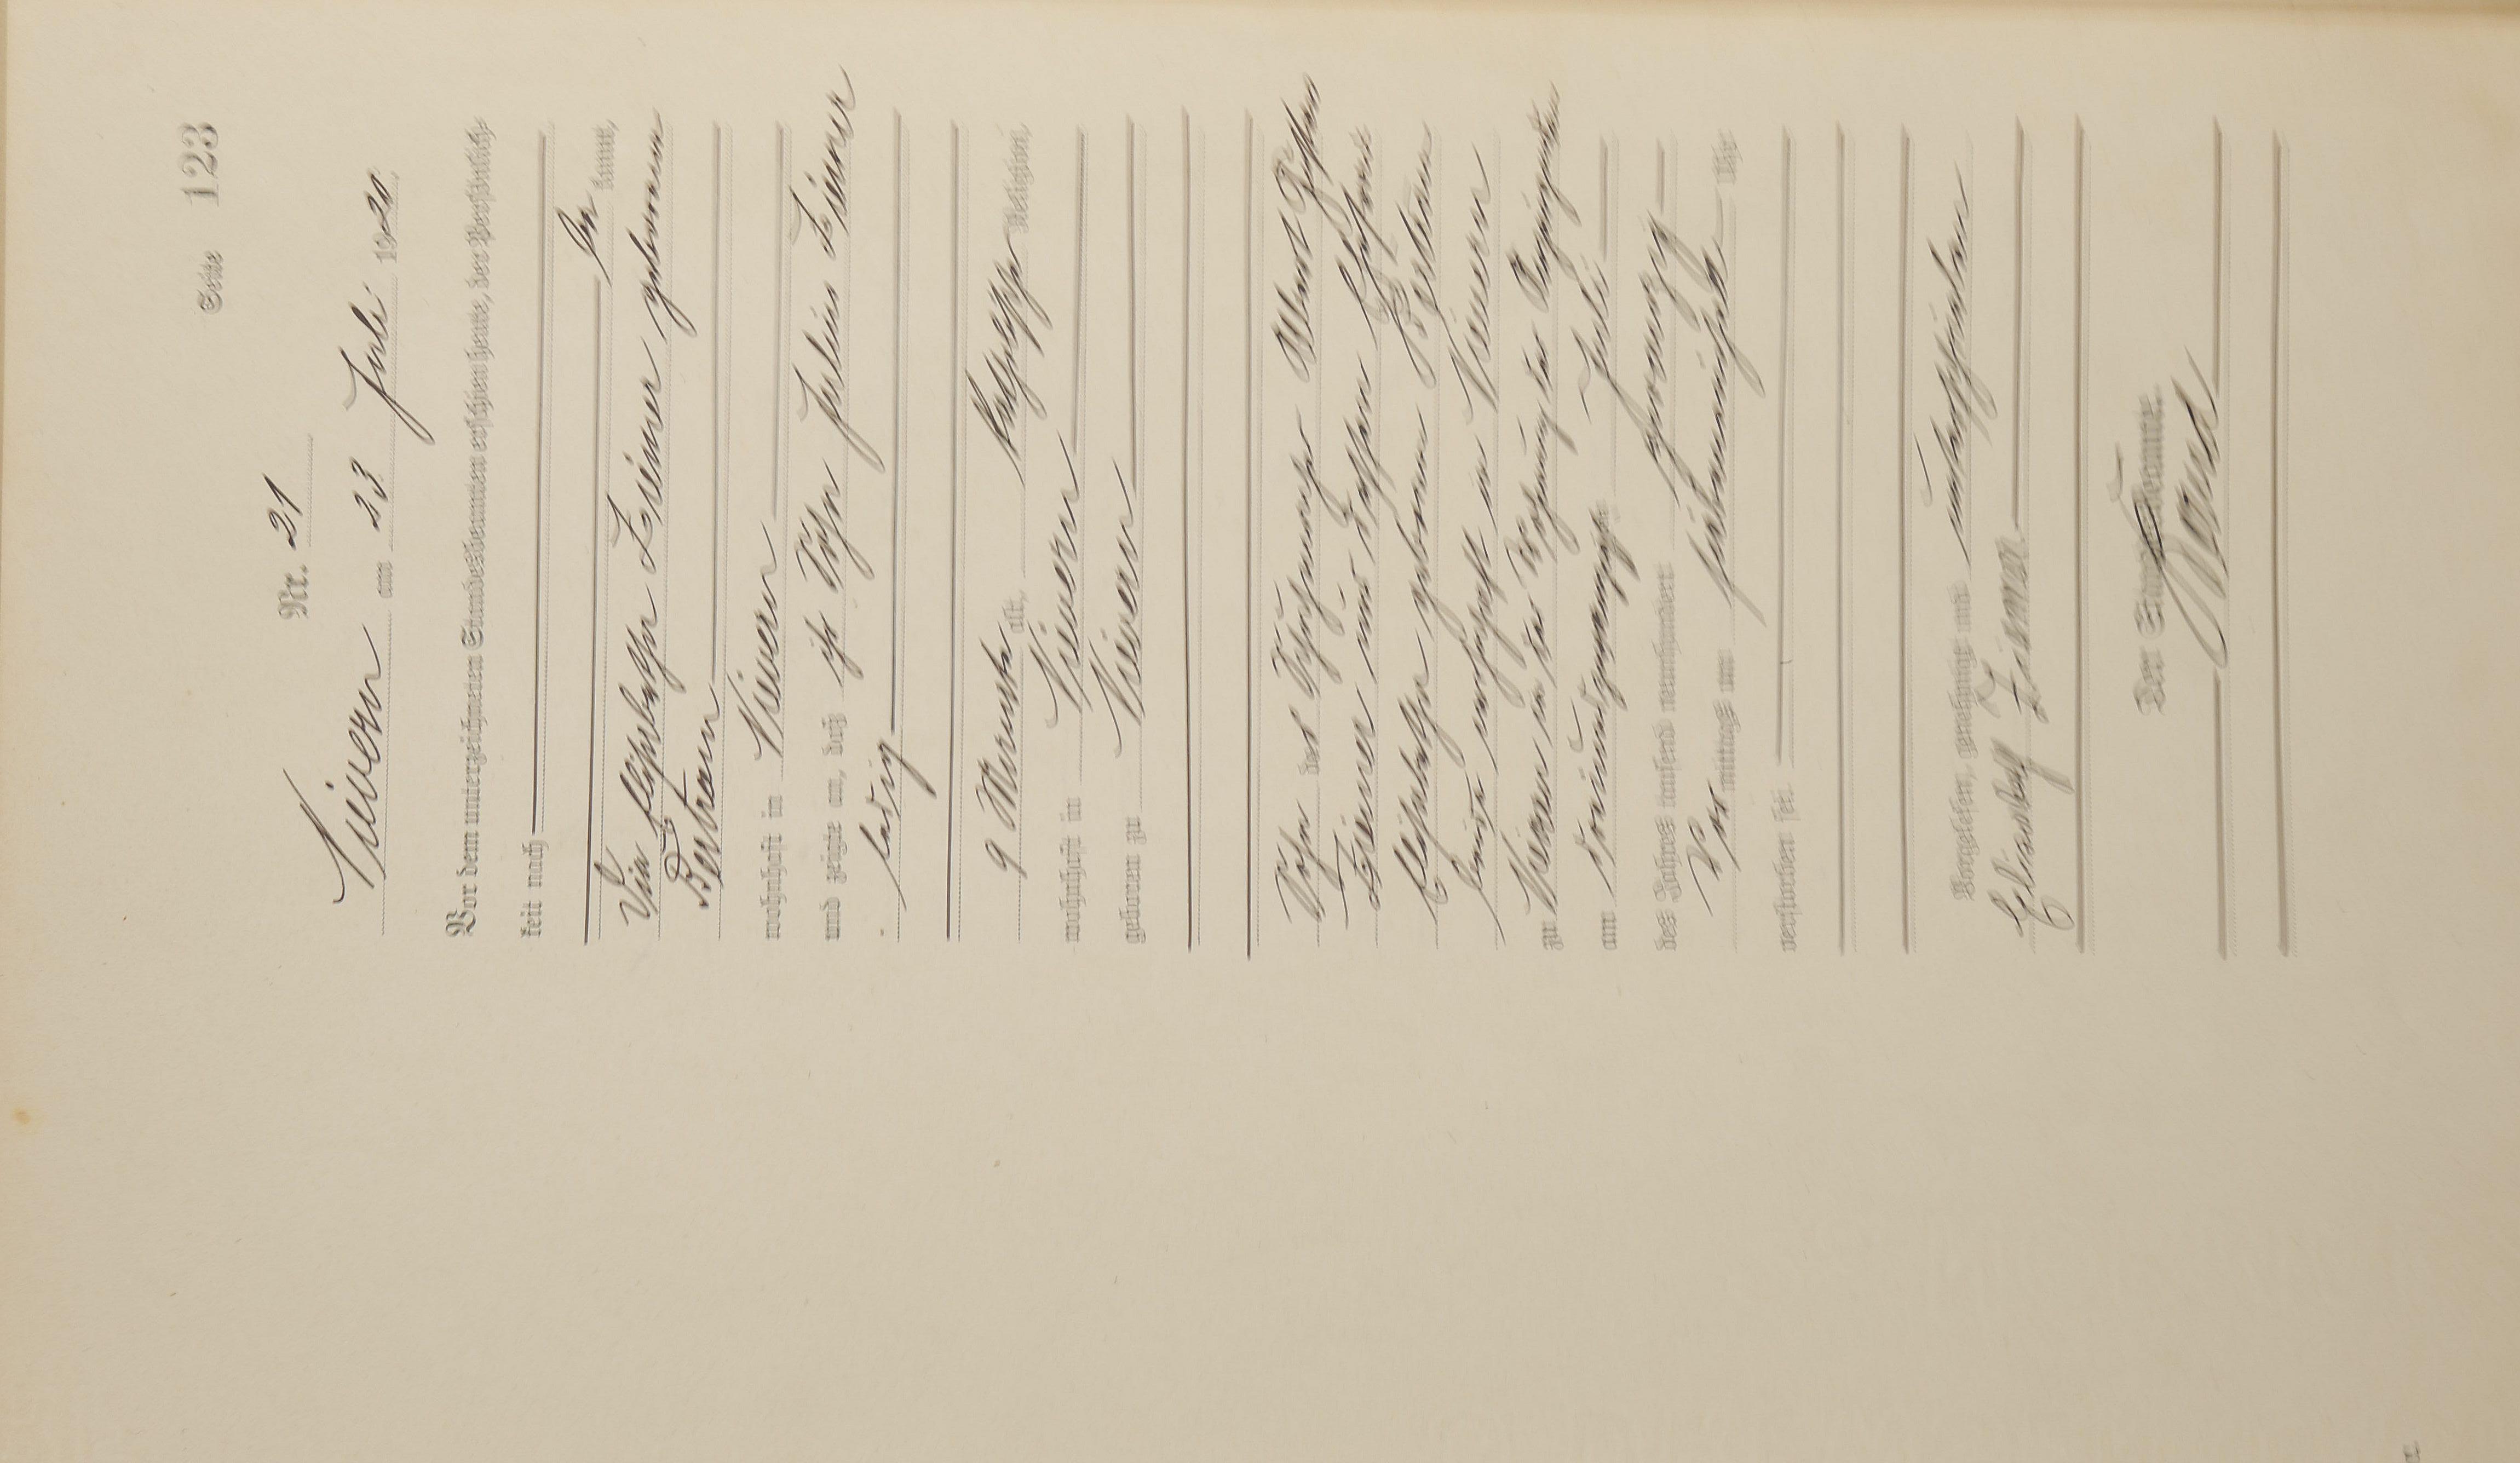 Seite 123
Nr. 21
Nievern am 23 Juli 1920.
Vor dem unterzeichneten Standesbeamten erschien heute, der Persönlich-
keit nach
kannt,
Die Elisabetha Zirmer geborenen
Bertram
wohnhaft in Nievern
und zeigte an, daß ihr Sohn Julius Zirmer
ledig
9 Monate alt, katholischer Religion,
wohnhaft in Nievern
geboren zu Nievern
Sohn des
und dessen Ehefrau
Elisabetha geborenen Bertram
beide wohnhaft in Nievern
zu Nievern in der Wohnung der
am dreiundzwanzigsten Juli
des Jahres tausend neunhundert zwanzig
Vor mittags um Uhr
verstorben sei.
Vorgelesen, genehmigt und unterschrieben
Elisabeth
Der Standesbeamte.